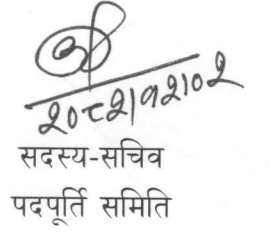 २०८२।१२।०२
सदस्य-सचिव
पदपूर्ति समिति